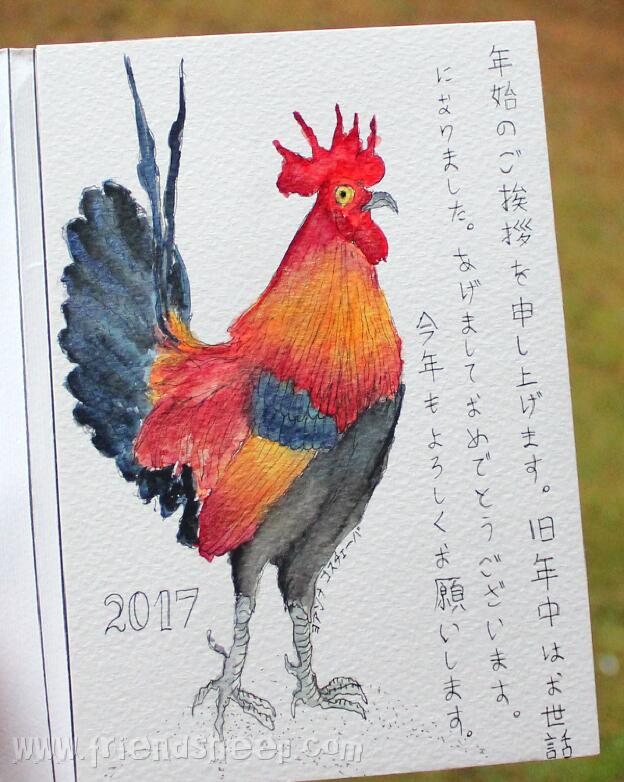 年始のご挨拶を申し上げます。旧年中はお世話
になりました。あけましておめでとうございます。
今年もよろしくお願いします。
2017
www.friendsheep.com